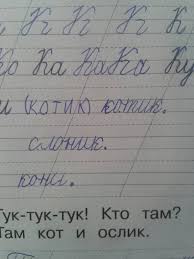 К К К К К
Ко Ка КаКа Ку
и (котик) котик.
слоник.
кони.
Тук-тук-тук! Кто там?
Там кот и ослик.